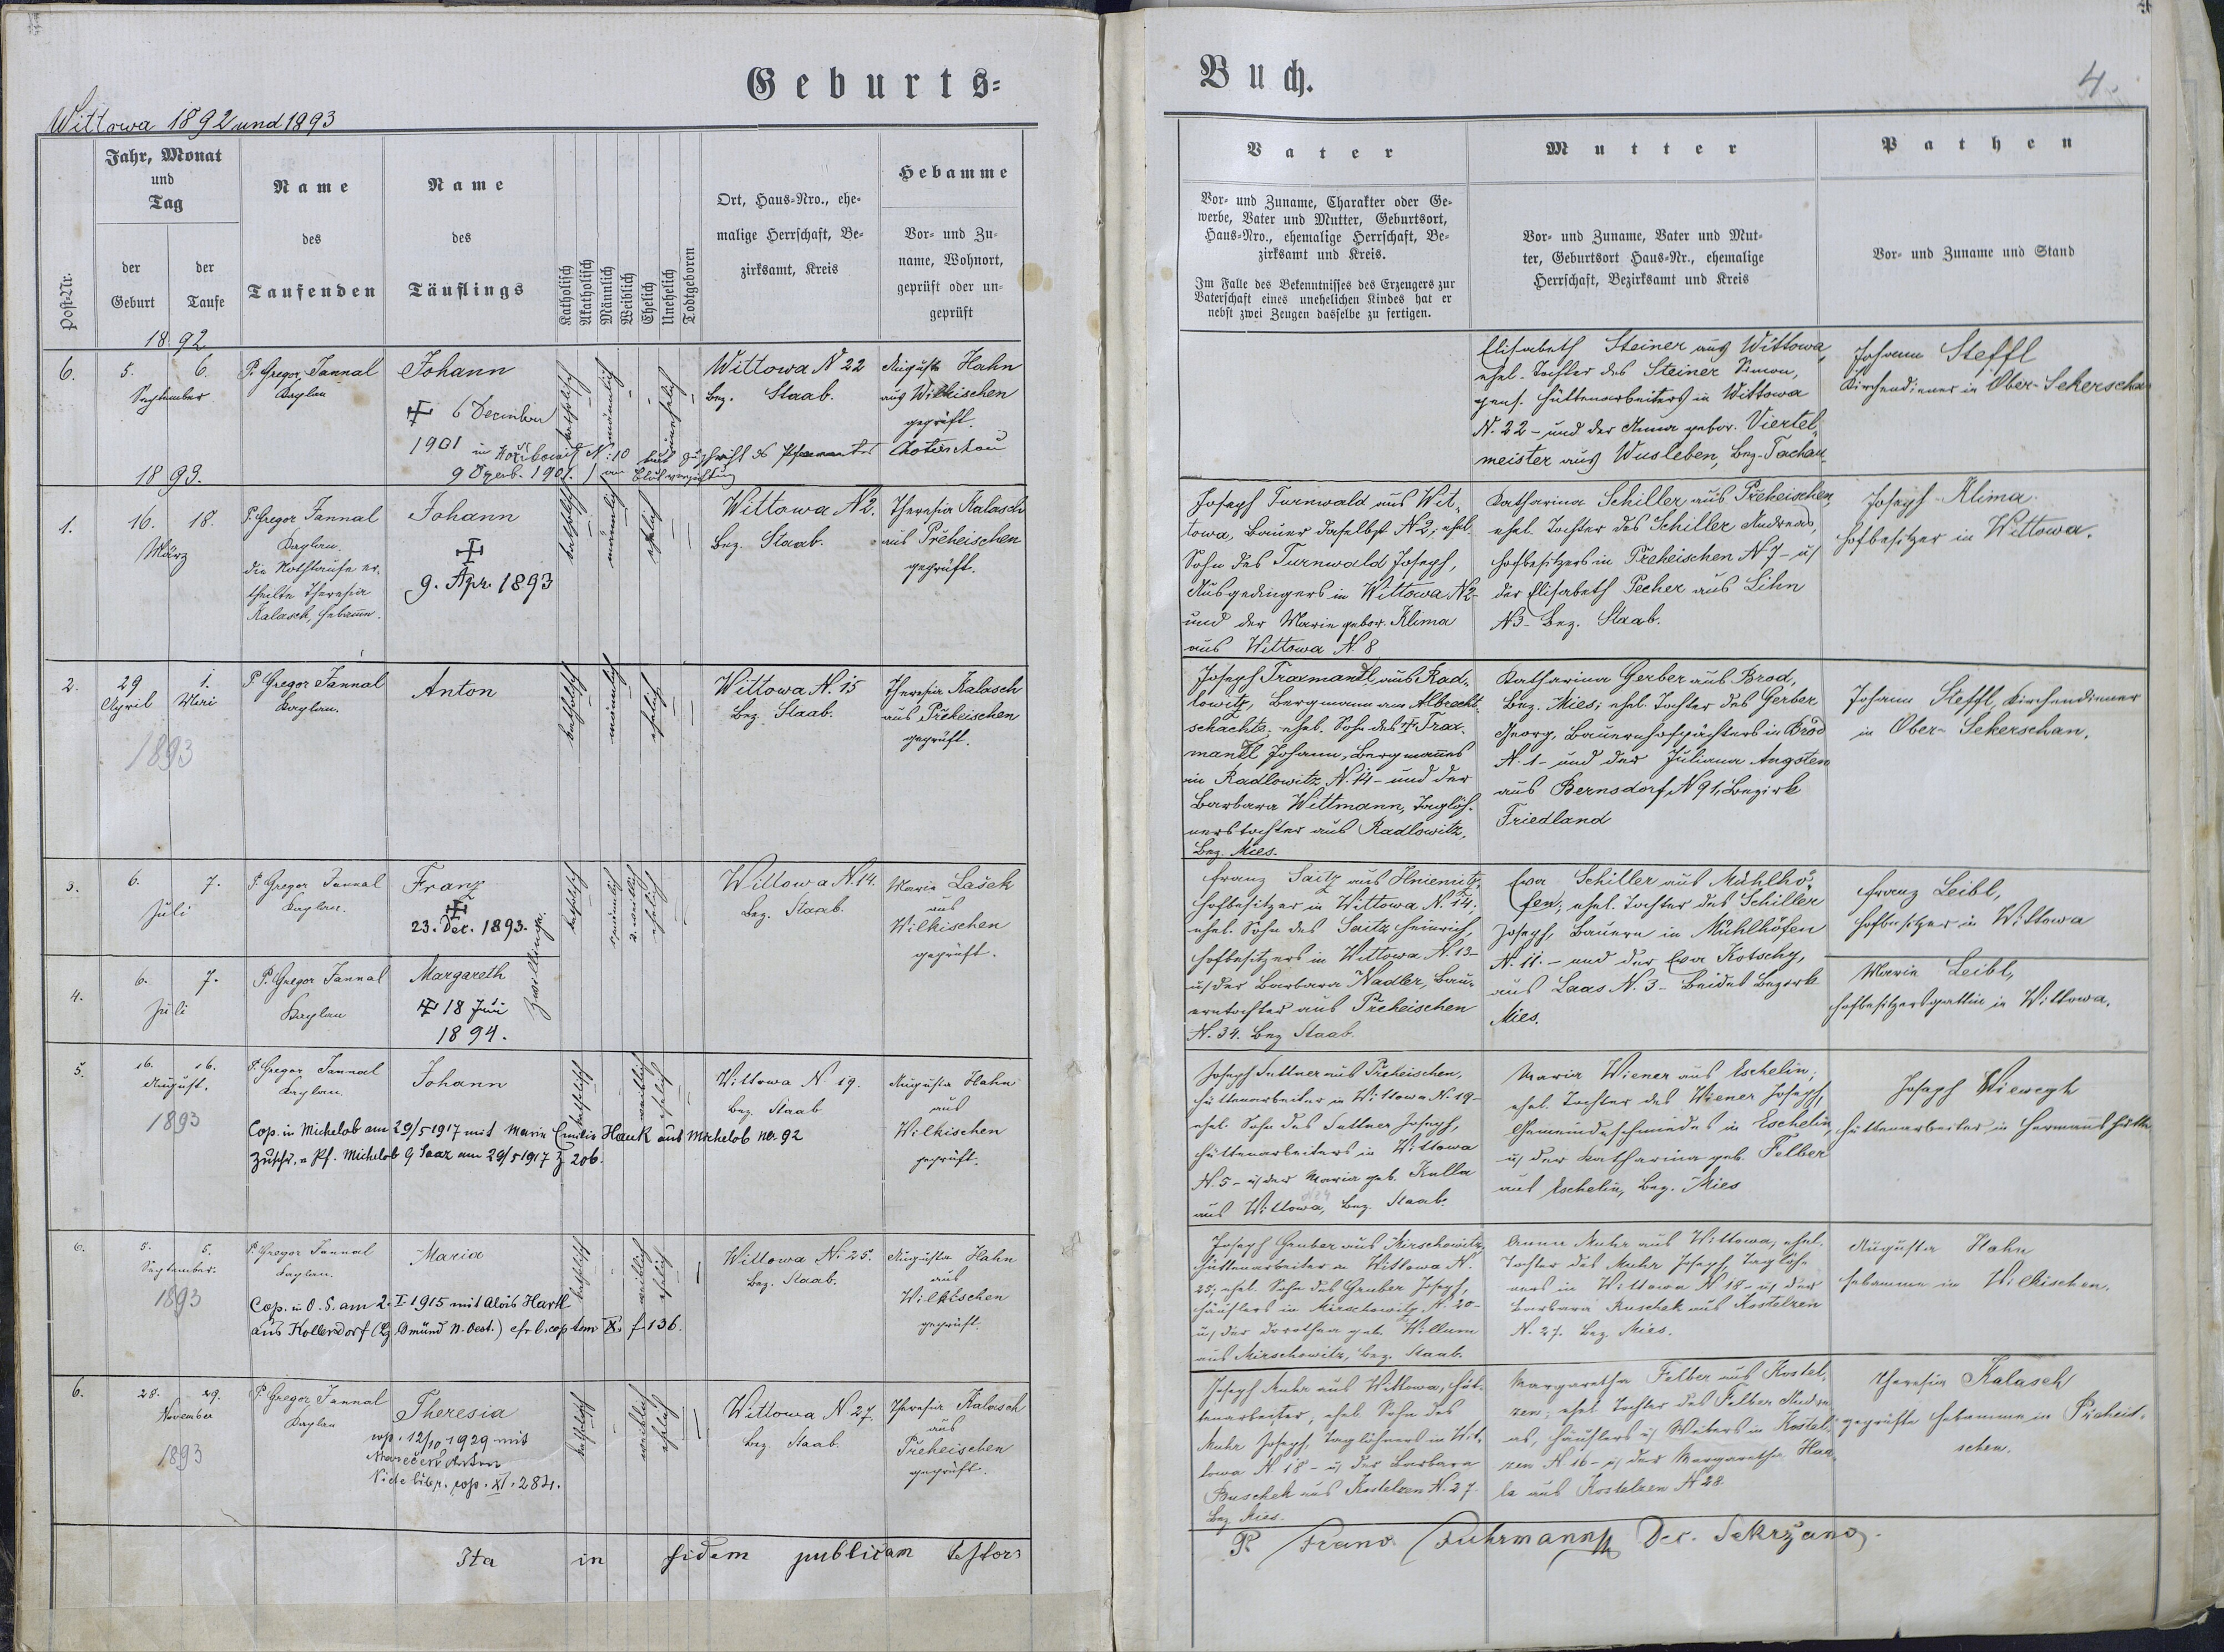 Geburts=
Buch.
4.
Wittowa 1892 und 1893
Post-Nr.
Jahr, Monat
und
Tag
der
Geburt
der
Taufe
Name
des
Taufenden
Name
des
Täuflings
Katholisch
Akatholisch
Männlich
Weiblich
Ehelich
Unehelich
Todtgeboren
Ort, Haus-Nro., ehe-
malige Herrschaft, Be-
zirksamt, Kreis
Hebamme
Vor- und Zu-
name, Wohnort,
geprüft oder un-
geprüft
Vater
Vor- und Zuname, Charakter oder Ge-
werbe, Vater und Mutter, Geburtsort,
Haus-Nro., ehemalige Herrschaft, Be-
zirksamt und Kreis.
Im Falle des Bekenntnisses des Erzeugers zur
Vaterschaft eines unehelichen Kindes hat er
nebst zwei Zeugen dasselbe zu fertigen.
Mutter
Vor- und Zuname, Vater und Mut-
ter, Geburtsort Haus-Nr., ehemalige
Herrschaft, Bezirksamt und Kreis
Pathen
Vor- und Zuname und Stand
1892
6.
5. 6.
September
P. Gregor Jannal
Kaplan
Johann
6 Dezember
1901 in N. 10 laut Zuschrift des Pfarramtes Chotieschau
9 Dezemb. 1901.
katholisch
männlich
unehelich
Wittowa N 22
Bez. Staab.
Augusta Hahn
aus Wilkischen
geprüft.
Elisabeth Steiner aus Wittowa,
ehel. Tochter des Steiner Simon,
pens. Hüttenarbeiters in Wittowa
N. 22 - und der Anna gebor. Viertel-
meister aus Wusleben, Bez. Tachau.
Johann Steffl
Kirchendiener in Ober-Sekerschan
1893.
1.
16. 18.
März
P. Gregor Jannal
Kaplan.
die Nothtaufe er-
theilte Theresia
Kalasch, Hebamme.
Johann
9. Apr. 1893
katholisch
männlich
ehelich
Wittowa N 2.
Bez. Staab.
Theresia Kalasch
aus Přeheischen
geprüft.
Joseph Turnwald aus Wit-
towa, Bauer daselbst N 2, ehel.
Sohn des Turnwald Joseph,
Ausgedingers in Wittowa N 2-
und der Maria gebor. Klima
aus Wittowa N. 8
Katharina Schiller aus Přeheischen,
ehel. Tochter des Schiller Andreas,
Hofbesitzers in Přeheischen N 7 - u.
der Elisabeth Pecher aus Lihn
N 3 - Bez. Staab.
Joseph Klima
Hofbesitzer in Wittowa.
2.
29 1.
April Mai
1893
P. Gregor Jannal
Kaplan.
Anton
katholisch
männlich
ehelich
Wittowa N. 15
Bez. Staab.
Theresia Kalasch
aus Přeheischen
geprüft.
Joseph Traxmandl aus Rad-
lowitz, Bergmann am Albrecht-
schachte; ehel. Sohn des Trax-
mandl Johann, Bergmanns
in Radlowitz N. 14 - und der
Barbara Wittmann, Taglöh-
nerstochter aus Radlowitz,
Bez. Mies.
Katharina Gerber aus Brod,
Bez. Mies; ehel. Tochter des Gerber
Georg, Bauernhofpächters in Brod
N. 1 - und der Juliana Augsten
aus Bernsdorf, N 91, Bezirk
Friedland
Johann Steffl, Kirchendiener
in Ober-Sekerschan.
3.
6. 7.
Juli
P. Gregor Jannal
Kaplan.
Franz
23. Dec. 1893.
Zwillinge.
katholisch
männlich
2. weiblich
ehelich
Wittowa N. 14.
Bez. Staab.
Maria Lašek
aus
Wilkischen
geprüft.
Franz Saitz aus Hniemitz,
Hofbesitzer in Wittowa N. 14;
ehel. Sohn des Saitz Heinrich,
Hofbesitzers in Wittowa N. 13 -
u. der Barbara Nadler, Bau-
erntochter aus Přeheischen
N. 34. Bez Staab.
Eva Schiller aus Mühlhö-
fen; ehel. Tochter des Schiller
Joseph, Bauern in Mühlhöfen
N. 11. - und der Eva Kotschy,
aus Laas N. 3 - Beides Bezirk
Mies.
Franz Leibl,
Hofbesitzer in Wittowa
4.
6. 7.
Juli
P. Gregor Jannal
Kaplan
Margareth
18 Juni
1894.
Maria Leibl,
Hofbesitzersgattin in Wittowa.
5.
16. 16.
August.
1893
P. Gregor Jannal
Kaplan.
Johann
Cop. in Michelob am 29/5 1917 mit Maria Emilie Hauk aus Michelob No. 92
Zuschr. v. Pf. Michelob 9 Saaz am 29/5 1917 Z 206.
katholisch
ehelich
Wittowa N. 19.
Bez. Staab
Augusta Hahn
aus
Wilkischen
geprüft.
Joseph Suttner aus Přeheischen,
Hüttenarbeiter in Wittowa N. 19 -
ehel. Sohn des Suttner Joseph,
Hüttenarbeiters in Wittowa
N. 5 - u. der Maria geb. Kulla
aus Wittowa, Bez. Staab.
Maria Wiener aus Eschelin;
ehel. Tochter des Wiener Joseph,
Gemeindeschmiedes in Eschelin,
u. der Katharina geb. Felber
aus Eschelin, Bez. Mies
Joseph Wiewegh
Hüttenarbeiter in Hermannshütte
6.
5. 5.
September.
1893
P. Gregor Jannal
Kaplan.
Maria
Cop. in O. S. am 2. I. 1915 mit Alois Hartl
aus Kollersdorf (Bz Gmünd N. Oest.) cfr l. cop tom X. f 136.
katholisch
weiblich
ehelich
Wittowa N. 25.
Bez. Staab.
Augusta Hahn
aus
Wilkischen
geprüft.
Joseph Gruber aus Mirschowitz,
Hüttenarbeiter in Wittowa N.
25; ehel. Sohn des Gruber Joseph,
Häuslers in Mirschowitz N. 20 -
u. der Dorothea geb. Willum
aus Mirschowitz, Bez. Staab.
Anna Muhr aus Wittowa, ehel.
Tochter des Muhr Joseph, Taglöh-
ners in Wittowa N 18 - u. der
Barbara Buschek aus Kostelzen
N. 27. Bez. Mies.
Augusta Hahn
Hebamme in Wilkischen.
6.
28. 29.
November
1893
P. Gregor Jannal
Kaplan
Theresia
cop. 12/10 1929 mit
Mareček Anton
Vide libr. cop. XI. 284.
katholisch
weiblich
ehelich
Wittowa N 27.
Bez. Staab.
Theresia Kalasch
aus
Přeheischen
geprüft.
Joseph Muhr aus Wittowa, Hüt-
tenarbeiter, ehel. Sohn des
Muhr Joseph, Taglöhners in Wit-
towa N 18 - u. der Barbara
Buschek aus Kostelzen N. 27.
Bez. Mies.
Margaretha Felber aus Kostel-
zen; ehel. Tochter des Felber Andre-
as, Häuslers u. Webers in Kostel-
zen N 16 - u. der Margaretha
aus Kostelzen N 28.
Theresia Kalasch
geprüfte Hebamme in Přeheis-
chen.
Ita in fidem publicam testor:
P. Franz Fuhrmann Dec. Sekrzano.